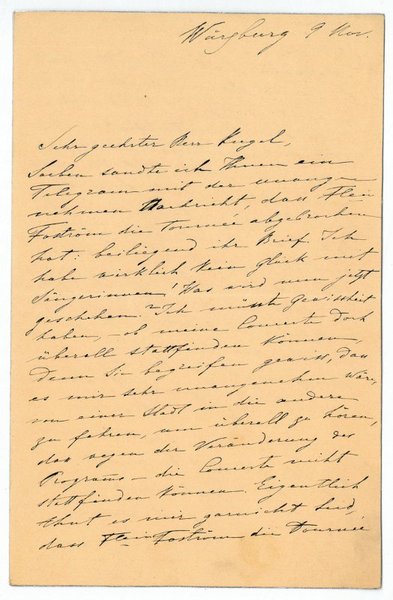 Würzburg 9 Nov.
Sehr geehrter Herr Kugel,
Soeben sandte ich Ihnen ein
Telegram mit der unange-
nehmen Nachricht, dass Flein
Foström die Tournée abgebrochen
hat: beiliegend ihr Brief. Ich
habe wirklich kein Glück mit
Sängerinnen! Was wird nun jetzt
geschehen? Ich müsste Gewissheit
haben, ob meine Concerte doch
überall stattfinden können,
denn Sie begreifen gewiss, dass
es mir sehr unangenehm wäre,
von einer Stadt in die andere
zu fahren, um überall zu hören,
das wegen der Veränderung des
Programs – die Concerte nicht
stattfinden können. Eigentlich
thut es mir garnicht leid,
dass Flein Foström die Tournée